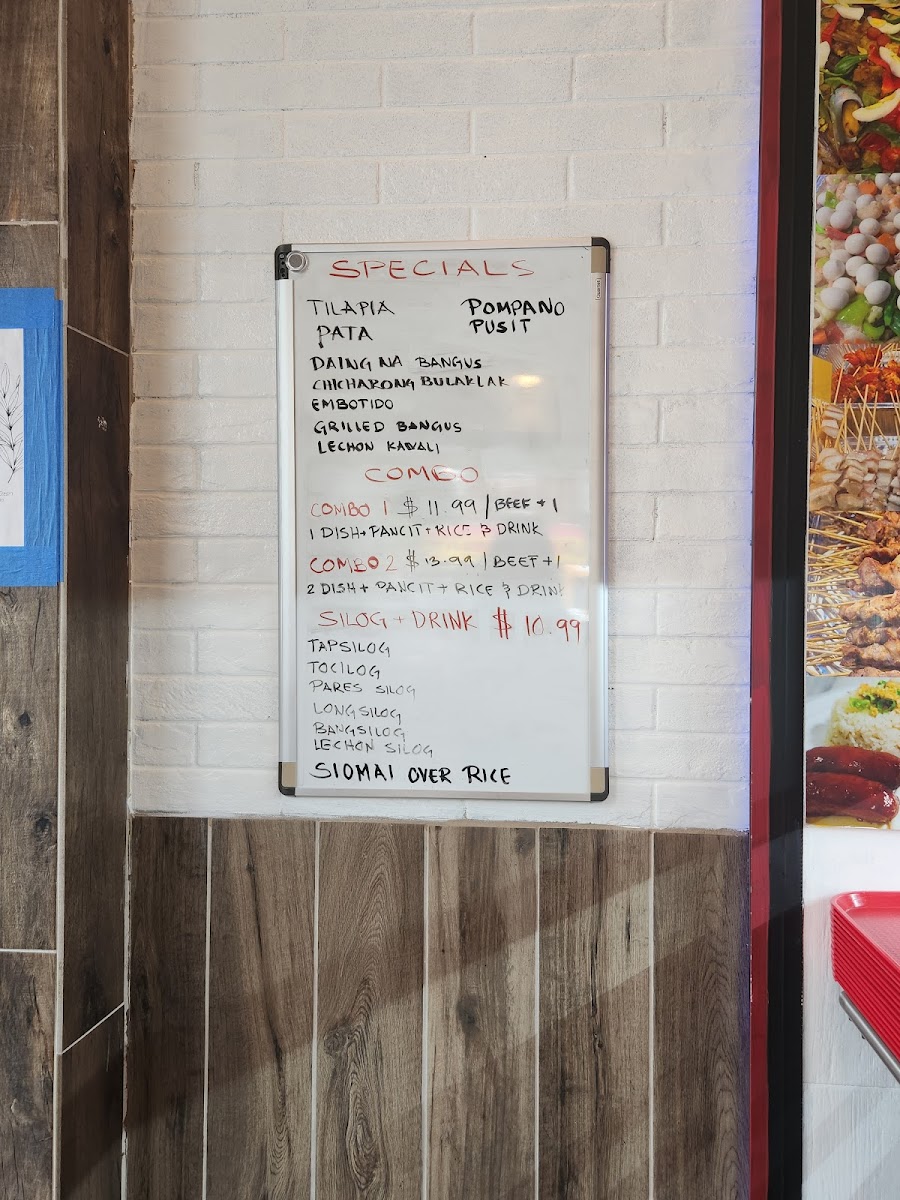 SPECIALS
TILAPIA POMPANO
PATA PUSIT
DAING NA BANGUS
CHICHARONG BULAKLAK
EMBOTIDO
GRILLED BANGUS
LECHON KAWALI
COMBO
COMBO 1 $ 11.99 / BEEF + 1
1 DISH + PANCIT + RICE & DRINK
COMBO 2 $ 13.99 / BEEF + 1
2 DISH + PANCIT + RICE & DRINK
SILOG + DRINK $ 10.99
TAPSILOG
TOCILOG
PARES SILOG
LONGSILOG
BANGSILOG
LECHON SILOG
SIOMAI OVER RICE